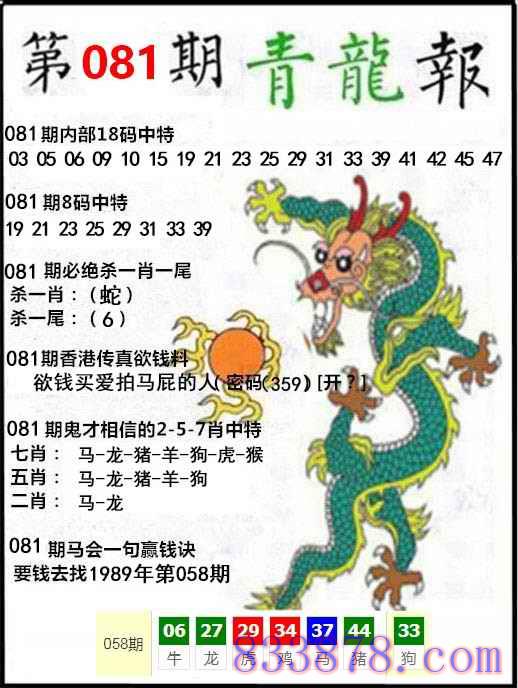 第081期 青龍報
081期内部18码中特
03 05 06 09 10 15 19 21 23 25 29 31 33 39 41 42 45 47
081期8码中特
19 21 23 25 29 31 33 39
081期必绝杀一肖一尾
杀一肖：（蛇）
杀一尾：（6）
081期香港传真欲钱料
欲钱买爱拍马屁的人(密码(359)[开？]
081期鬼才相信的2-5-7肖中特
七肖： 马-龙-猪-羊-狗-虎-猴
五肖： 马-龙-猪-羊-狗
二肖： 马-龙
081期马会一句赢钱诀
要钱去找1989年第058期
058期 06 27 29 34 37 44 33
牛 龙 虎 鸡 马 猪 狗
833878.com